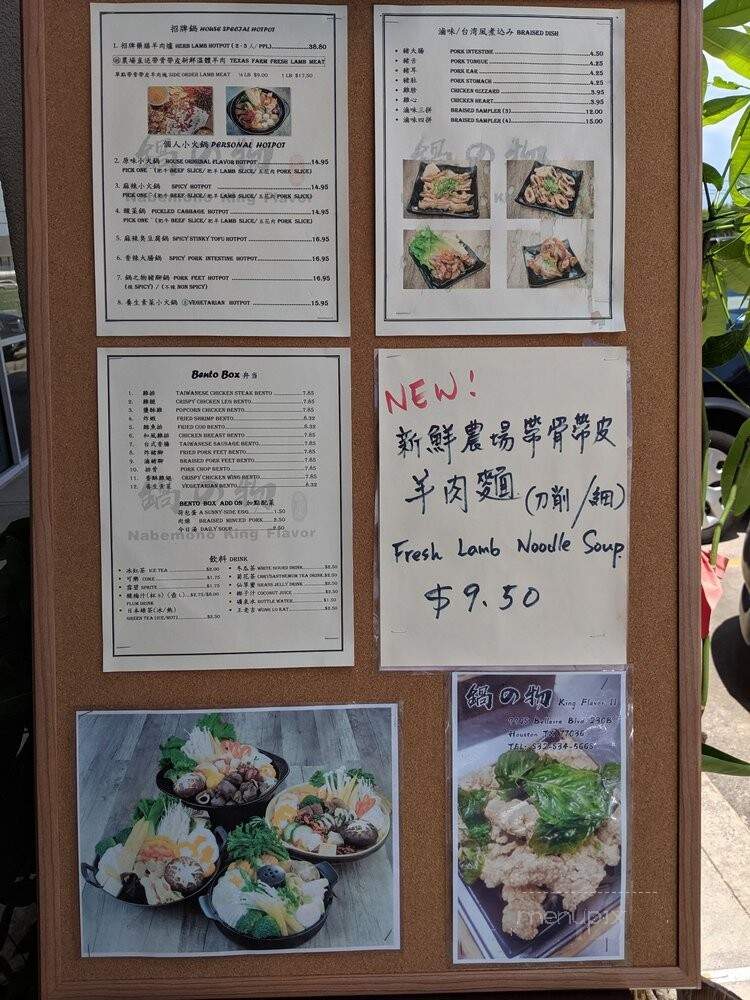 招牌鍋 HOUSE SPECIAL HOTPOT
1. 招牌藥膳羊肉爐 HERB LAMB HOTPOT ( 2 - 3 人/ PPL) 38.80
農場直送帶骨帶皮新鮮溫體羊肉 TEXAS FARM FRESH LAMB MEAT
單點帶骨帶皮羊肉塊 SIDE ORDER LAMB MEAT ½ LB $9.00 1 LB $17.50
個人小火鍋 PERSONAL HOTPOT
2. 原味小火鍋 HOUSE ORIGINAL FLAVOR HOTPOT 14.95
PICK ONE (肥牛 BEEF SLICE/ 肥羊 LAMB SLICE/ 五花肉 PORK SLICE)
3. 麻辣小火鍋 SPICY HOTPOT 14.95
PICK ONE (肥牛 BEEF SLICE/ 肥羊 LAMB SLICE/ 五花肉 PORK SLICE)
4. 酸菜鍋 PICKLED CABBAGE HOTPOT 14.95
PICK ONE (肥牛 BEEF SLICE/ 肥羊 LAMB SLICE/ 五花肉 PORK SLICE)
5. 麻辣臭豆腐鍋 SPICY STINKY TOFU HOTPOT 16.95
6. 香辣大腸鍋 SPICY PORK INTESTINE HOTPOT 16.95
7. 鍋之物豬腳鍋 PORK FEET HOTPOT 16.95
(辣 SPICY) / (不辣 NON SPICY)
8. 養生素菜小火鍋 VEGETARIAN HOTPOT 15.95
鍋の物
Nabemono King Flavor
滷味/台湾風煮込み BRAISED DISH
• 豬大腸 PORK INTESTINE 4.50
• 豬舌 PORK TONGUE 4.25
• 豬耳 PORK EAR 4.25
• 豬肚 PORK STOMACH 4.25
• 雞胗 CHICKEN GIZZARD 3.95
• 雞心 CHICKEN HEART 3.95
• 滷味三拼 BRAISED SAMPLER (3) 12.00
• 滷味四拼 BRAISED SAMPLER (4) 15.00
鍋の物
Bento Box 弁当
1. 雞排 TAIWANESE CHICKEN STEAK BENTO 7.85
2. 雞腿 CRISPY CHICKEN LEG BENTO 7.85
3. 鹽酥雞 POPCORN CHICKEN BENTO 7.85
4. 炸蝦 FRIED SHRIMP BENTO 8.32
5. 鱈魚排 FRIED COD BENTO 8.32
6. 和風雞排 CHICKEN BREAST BENTO 7.85
7. 台式香腸 TAIWANESE SAUSAGE BENTO 7.85
8. 炸豬腳 FRIED PORK FEET BENTO 7.85
9. 滷豬腳 BRAISED PORK FEET BENTO 7.85
10. 排骨 PORK CHOP BENTO 7.85
11. 香酥雞翅 CRISPY CHICKEN WING BENTO 7.85
12. 養生素菜 VEGETARIAN BENTO 8.32
BENTO BOX ADD ON 加點配菜
荷包蛋 A SUNNY-SIDE EGG 1.50
肉燥 BRAISED MINCED PORK 2.50
今日湯 DAILY SOUP 2.50
鍋の物
Nabemono King Flavor
飲料 DRINK
• 冰紅茶 ICE TEA $2.00
• 可樂 COKE $1.75
• 雪碧 SPRITE $1.75
• 酸梅汁(杯 S) (壺 L) $2.75/$8.00
PLUM DRINK
• 日本綠茶(冰/熱)
GREEN TEA (ICE/HOT) $2.50
• 冬瓜茶 WHITE GOURD DRINK $2.50
• 菊花茶 CHRYSANTHEMUM TEA DRINK $2.50
• 仙草蜜 GRASS JELLY DRINK $2.50
• 椰子汁 COCONUT JUICE $2.50
• 礦泉水 BOTTLE WATER $1.50
• 王老吉 WONG LO KAT $2.50
NEW!
新鮮農場帶骨帶皮
羊肉麵 (刀削/細)
Fresh Lamb Noodle Soup
$9.50
鍋の物 King Flavor II
Bellaire Blvd 230B
Houston TX 77036
TEL: 832-834-5665
menupix